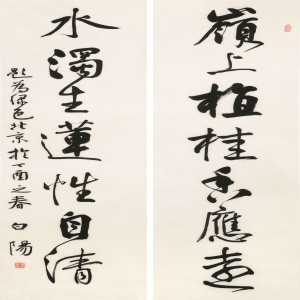 嶺上植桂香應遠
水濁生蓮性自清
題為綠色北京於丁酉之春 白陽